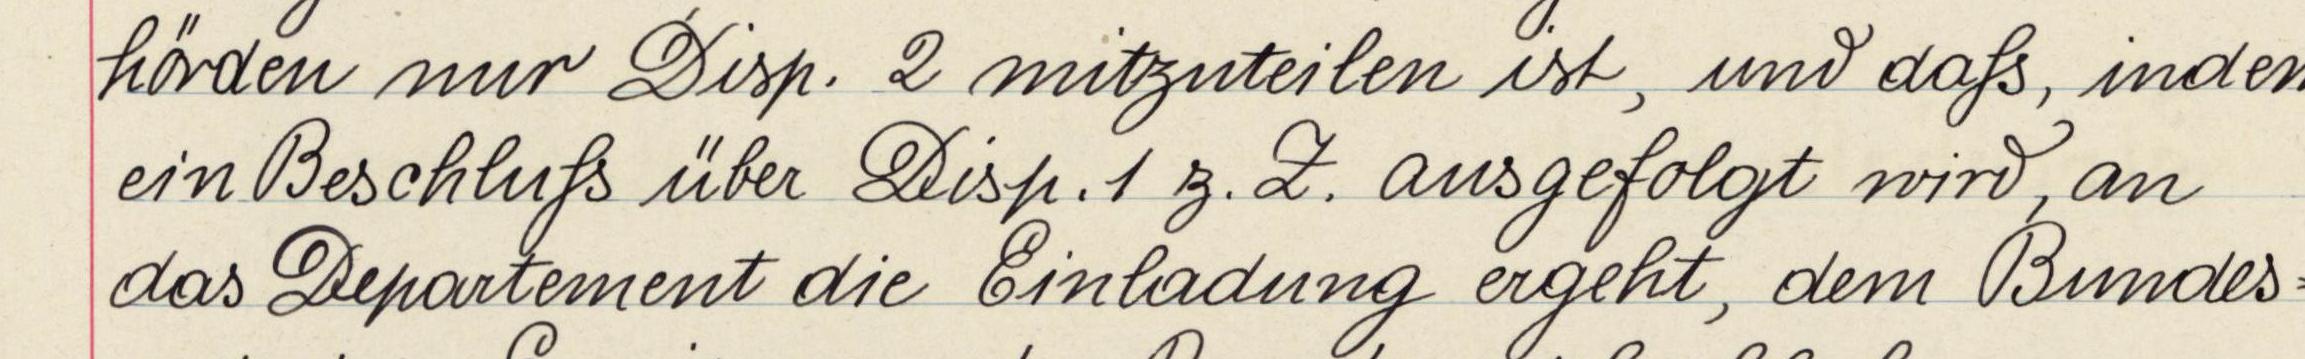 hörden nur Disp. 2 mitzuteilen ist, und daſs, indem
ein Beschluſs über Disp. 1 z. Z. ausgefolgt wird, an
das Departement die Einladung ergeht, dem Bundes=